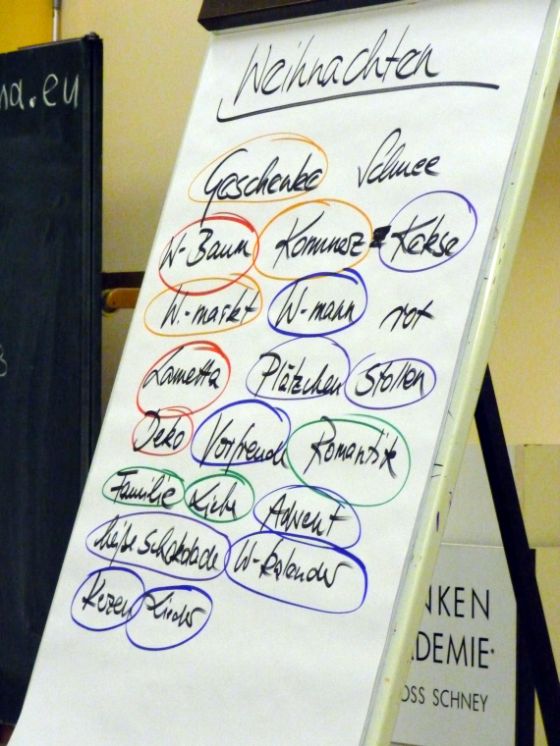 na.eu
Weihnachten
Geschenke Schnee
W-Baum Kommerz Kekse
W.-markt W-mann rot
Lametta Plätzchen Stollen
Deko Vorfreude Romantik
Familie Liebe Advent
heiße Schokolade W-Kalender
Kerzen Lieder
NKEN
ADEMIE
OSS SCHNEY